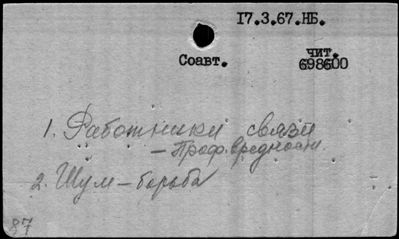 17.3.67.НБ.
Соавт.
чит.
698600
1. Работники связи
— Проф. вредности.
2. Шум — борьба
87